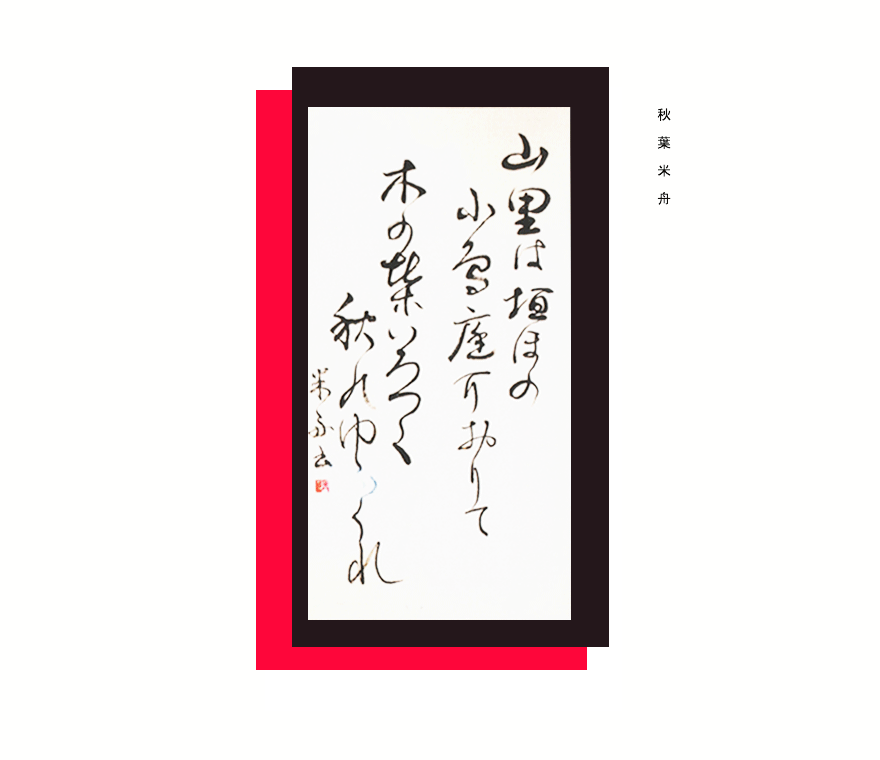 秋葉米舟
山里は垣ほの
小鳥庭におりて
木の葉いろつく
秋のゆふくれ
米舟書